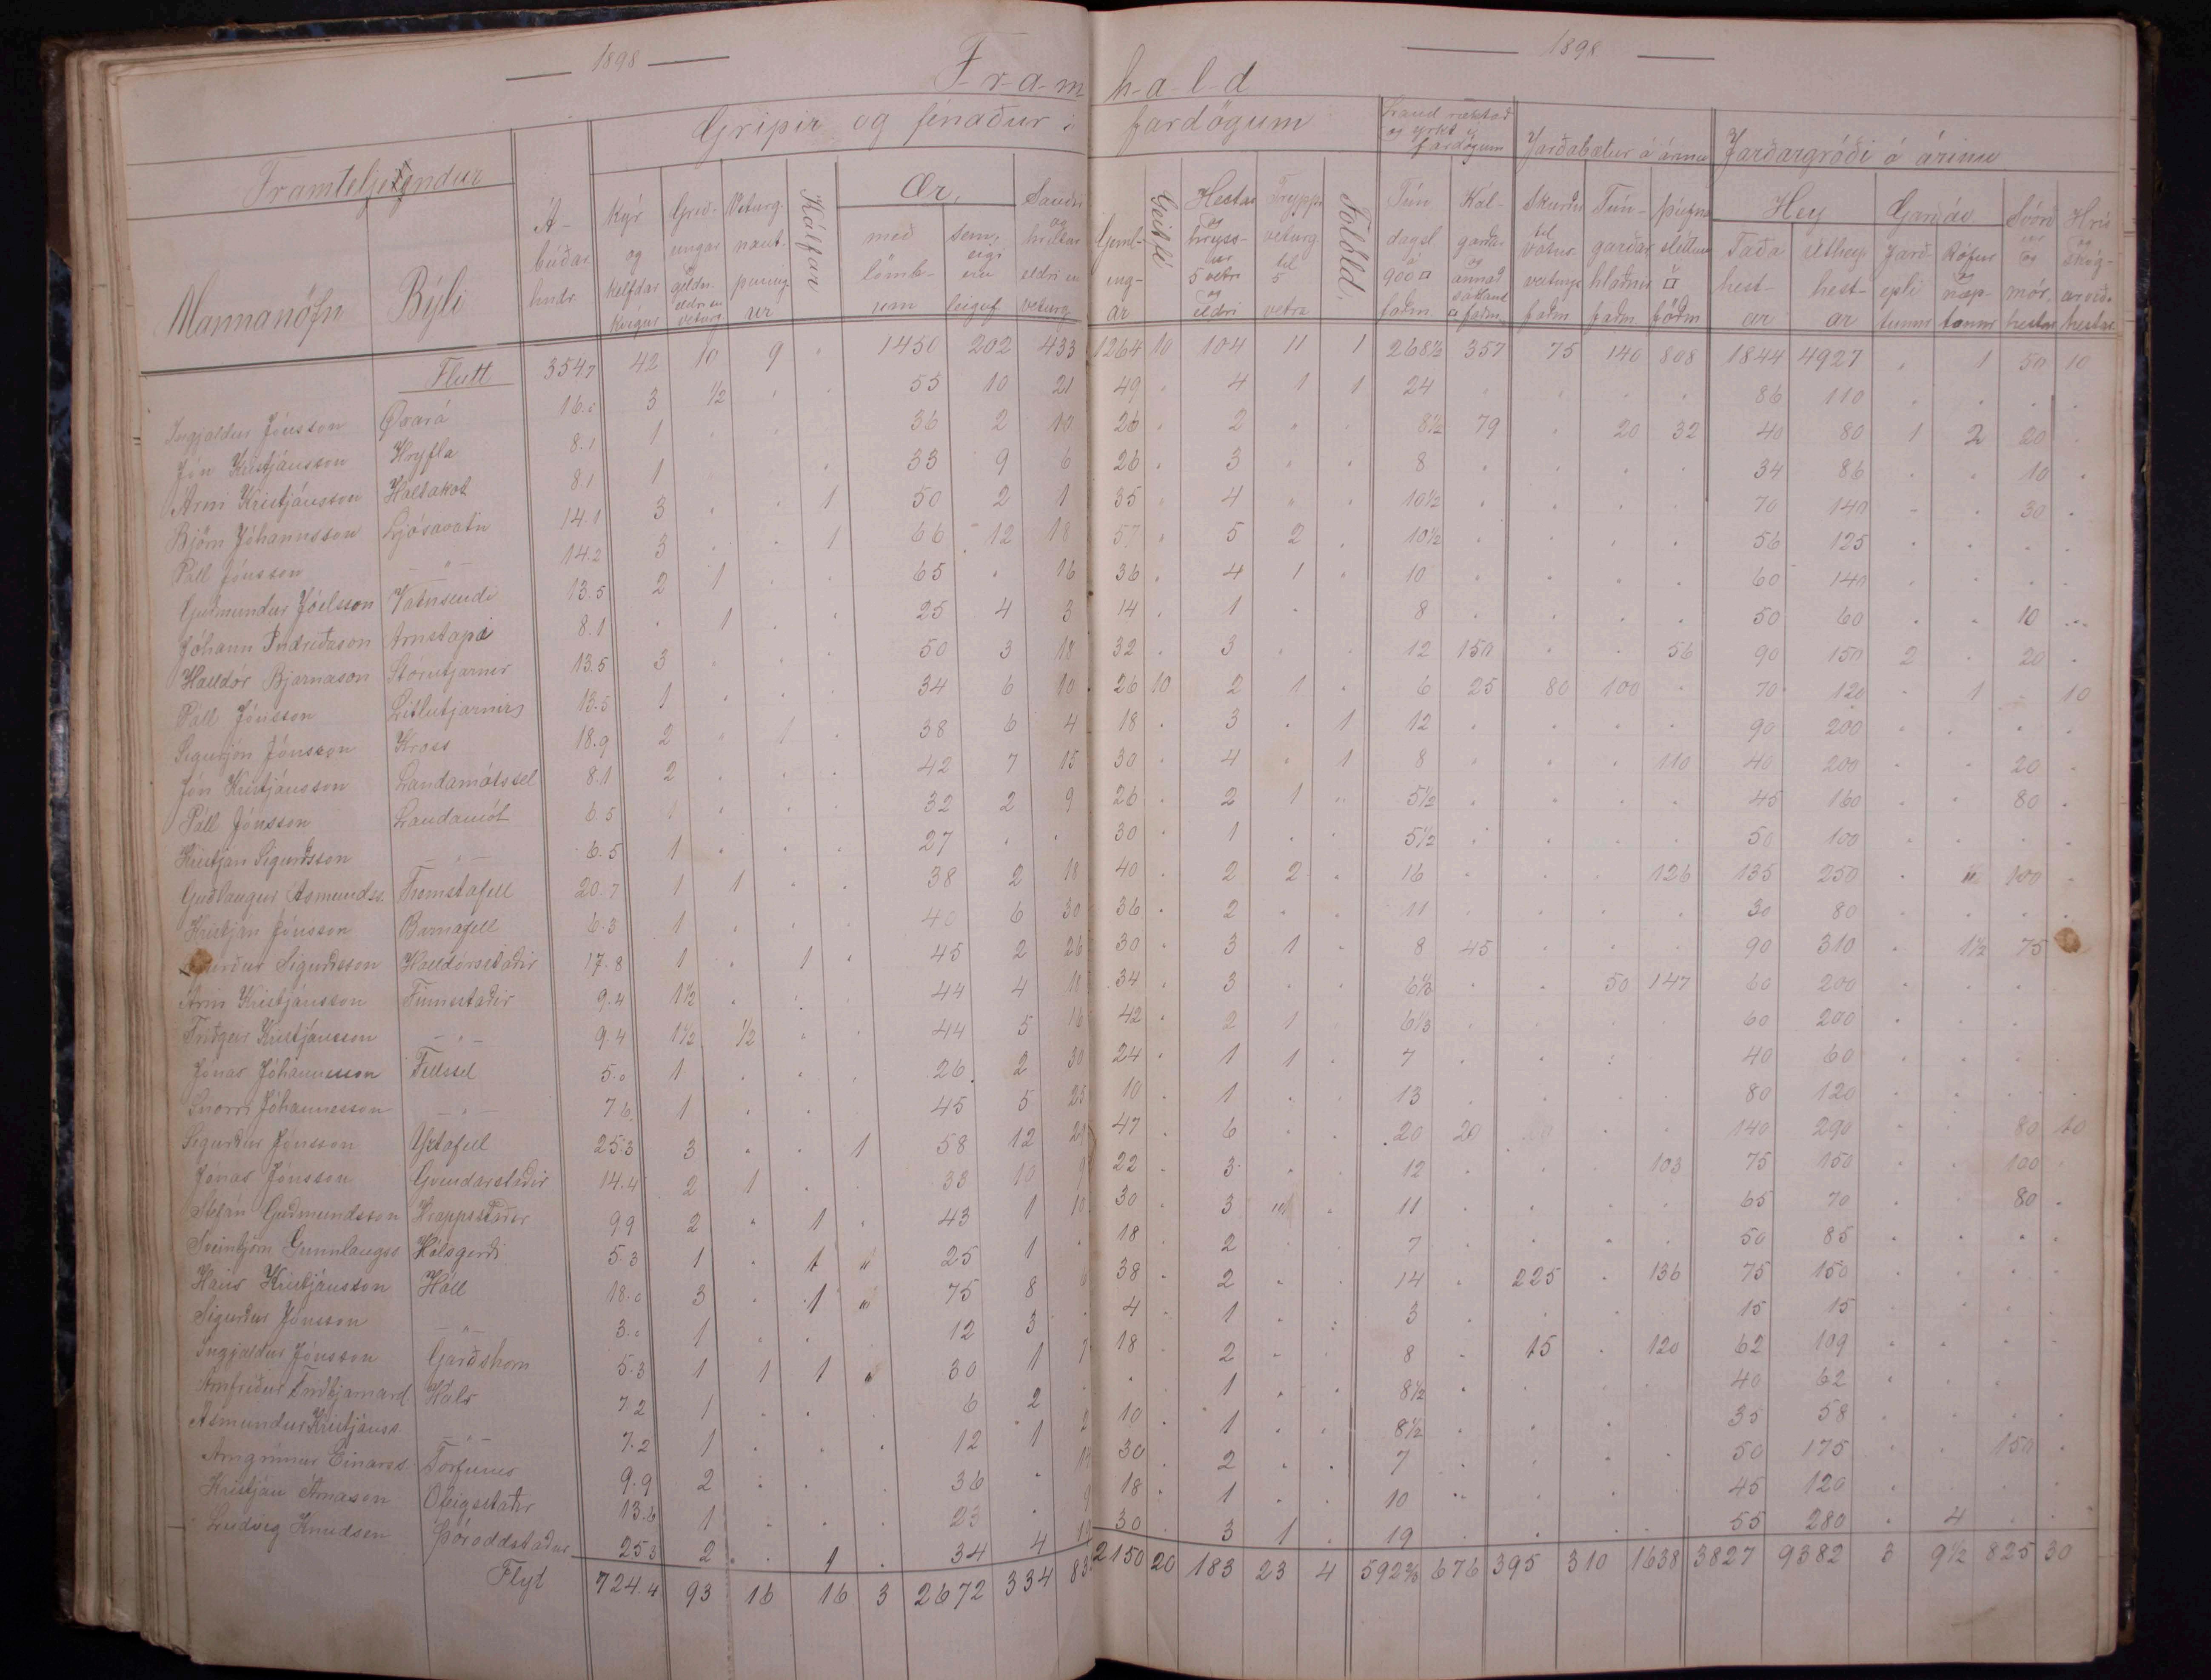 1898 1898
F-r-a-m h-a-l-d
Framteljendur Gripir og fénaður í fardögum Land ræktað og yrkt í fardögum Jarðabætur á árinu Jarðargróði á árinu
Mannanöfn Býli Á-búðar hndr. Kýr og kelfdar kvígur Grið-ungar geldn. eldri en veturg. Veturg. naut-pening-ur Kálfar Ær, með lömb-um sem eigi eru lembdar Sauðir og hrútar eldri en veturg. Geml-ing-ar Geitfé Hestar og hryss-ur 5 vetra og eldri Tryppi veturg. til 5 vetra Folöld. Tún dagsl. á 900 □ faðm. Kál-garðar og annað sáðland □ faðm. Skurðir til vatns veitinga faðm Tún-garðar hlaðnir faðm Þúfna sléttun □ föðm Hey Taða hest-ar Úthey hest-ar Garðáv. Jarð-epli tunnr Rófur og næp. tunnr Svörð og mór, hestar Hrís og skóg-arvið. hestar
Flutt 354.7 42 10 9 " 1450 202 433 1264 10 104 11 1 268½ 357 75 140 808 1844 4927 . 1 50 10
Ingjaldur Jónsson Öxará 16.0 3 ½ . . 55 10 21 49 . 4 1 1 24 . . . . 86 110 . . . .
Jón Kristjánsson Hryfla 8.1 1 . . . 36 2 10 26 . 2 " . 8½ 79 . 20 32 40 80 1 2 20 .
Arni Kristjánsson Holtakot 8.1 1 . . . 33 9 6 26 . 3 " . 8 . . . . 34 86 . . 10 .
Björn Jóhannsson Ljósavatn 14.1 3 . . 1 50 2 1 35 . 4 " . 10½ . . . . 70 140 . . 30 .
Páll Jónsson —"— 14.2 3 . . 1 66 12 18 57 . 5 2 . 10½ . . . . 56 125 . . . .
Guðmundur Jóelsson Vatnsendi 13.5 2 1 . . 65 . 16 36 . 4 1 . 10 . . . . 60 140 . . . .
Jóhann Indriðason Arnstapi 8.1 . 1 . . 25 4 3 14 . 1 . . 8 . . . . 50 60 . . 10 .
Halldór Bjarnason Stórutjarnir 13.5 3 . . . 50 3 18 32 . 3 . . 12 150 . . 56 90 150 2 . 20 .
Páll Jónsson Litlutjarnir 13.5 1 . . . 34 6 10 26 10 2 1 . 6 25 80 100 . 70 120 . 1 . 10
Sigurjón Jónsson Kross 18.9 2 . 1 . 38 6 4 18 . 3 . 1 12 . . . . 90 200 . . . .
Jón Kristjánsson Landamótssel 8.1 2 . . . 42 7 15 30 . 4 . 1 8 . . . 110 40 200 . . 20 .
Páll Jónsson Landamót 6.5 1 . . . 32 2 9 26 . 2 1 . 5½ . . . . 45 160 . . 80 .
Kristján Sigurðsson —"— 6.5 1 . . . 27 . . 30 . 1 . . 5½ . . . . 50 100 . . . .
Guðlaugur Asmundss. Fremstafell 20.7 1 1 . . 38 2 18 40 . 2 2 . 16 . . . 126 135 250 . . 100 .
Kristján Jónsson Barnafell 6.3 1 . . . 40 6 30 36 . 2 . . 11 . . . . 30 80 . . . .
Sigurður Sigurðsson Halldórsstaðir 17.8 1 . 1 . 45 2 26 30 . 3 1 . 8 45 . . . 90 310 . 1½ 75
Arni Kristjánsson Finnsstaðir 9.4 1½ . . . 44 4 11 34 . 3 . . 6⅓ . . 50 147 60 200 . . . .
Friðgeir Kristjánsson —"— 9.4 1½ ½ . . 44 5 16 42 . 2 1 . 6⅓ . . . . 60 200 . . . .
Jónas Jóhannesson Fellssel 5.0 1 . . . 26 2 30 24 . 1 1 . 7 . . . . 40 60 . . . .
Snorri Jóhannesson —"— 7.6 1 . . . 45 5 25 10 . 1 . . 13 . . . . 80 120 . . . .
Sigurður Jónsson Yztafell 25.3 3 . . 1 58 12 20 47 . 6 . . 20 20 . . . 140 290 . . 80 10
Jónas Jónsson Gvendarstaðir 14.4 2 1 . . 33 10 9 22 . 3 . . 12 . . . 103 75 150 . . 100 .
Stefán Guðmundsson Hrappsstaðir 9.9 2 . 1 . 43 1 10 30 . 3 . . 11 . . . . 65 70 . . 80 .
Sveinbjörn Gunnlaugss Hólsgerði 5.3 1 . 1 " 25 1 . 18 . 2 . . 7 . . . . 50 85 . . . .
Hans Kristjánsson Hóll 18.0 3 . 1 " 75 8 6 38 . 2 . . 14 . 225 . 136 75 150 . . . .
Sigurður Jónsson —"— 3.0 1 . . . 12 3 . 4 . 1 . . 3 . . . . 15 15 . . . .
Ingjaldur Jónsson Garðshorn 5.3 1 1 1 " 30 1 7 18 . 2 . . 8 . 15 . 120 62 109 . . . .
Arnfríður Friðbjarnard Háls 7.2 1 . . . 6 2 . . . 1 . . 8½ . . . . 40 62 . . . .
Ásmundur Kristjánss —"— 7.2 1 . . . 12 1 2 10 . 1 . . 8½ . . . . 35 58 . . . .
Arngrímur Einarss Torfunes 9.9 2 . . . 36 . 18 30 . 2 . . 7 . . . . 50 175 . . 150 .
Kristján Arnason Ofeigsstaðir 13.6 1 . . . 23 . 9 18 . 1 . . 10 . . . . 45 120 . . . .
Ludvig Knudsen Þóroddstaður 25.3 2 . 1 . 34 4 12 30 . 3 1 . 19 . . . . 55 280 . 4 . .
Flyt 724.4 93 16 16 3 2672 334 83 2150 20 183 23 4 592⅔ 676 395 310 1638 3827 9382 3 9½ 825 30